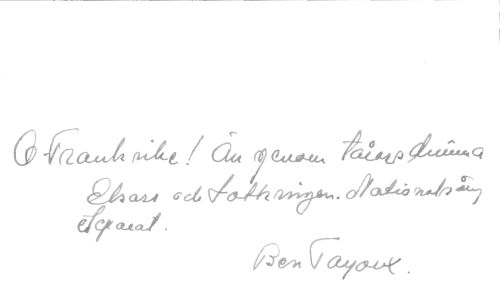 O Frankrike! Än genom tårars dimma
Elsass och Lothringen. Nationalsång
separat.
Ben Tayoux.